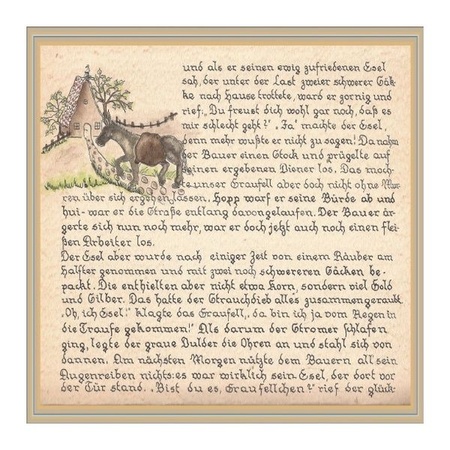 und als er seinen ewig zufriedenen Esel
sah, der unter der Last zweier schwerer Säk-
ke nach Hause trottete, ward er zornig und
rief: „Du freust dich wohl gar noch, daß es
mir schlecht geht?“ „Ja“ machte der Esel,
denn mehr wußte er nicht zu sagen! Da nahm
der Bauer einen Stock und prügelte auf
seinen ergebenen Diener los. Das moch-
te unser Graufell aber doch nicht ohne Mur-
ren über sich ergehen lassen. Hopp warf er seine Bürde ab und
hui- war er die Straße entlang davongelaufen. Der Bauer är-
gerte sich nun noch mehr, war er doch jetzt auch noch einen flei-
ßen Arbeiter los.
Der Esel aber wurde nach einiger Zeit von einem Räuber am
Halfter genommen und mit zwei noch schwereren Säcken be-
packt. Die enthielten aber nicht etwa Korn, sondern viel Gold
und Silber. Das hatte der Strauchdieb alles zusammengeraubt.
„Oh, ich Esel!“ klagte das Graufell, „da bin ich ja vom Regen in
die Traufe gekommen!“ Als darum der Stromer schlafen
ging, legte der graue Dulder die Ohren an und stahl sich von
dannen. Am nächsten Morgen nützte dem Bauern all sein
Augenreiben nichts: es war wirklich sein Esel, der dort vor
der Tür stand. „Bist du es, Graufellchen?“ rief der glück-